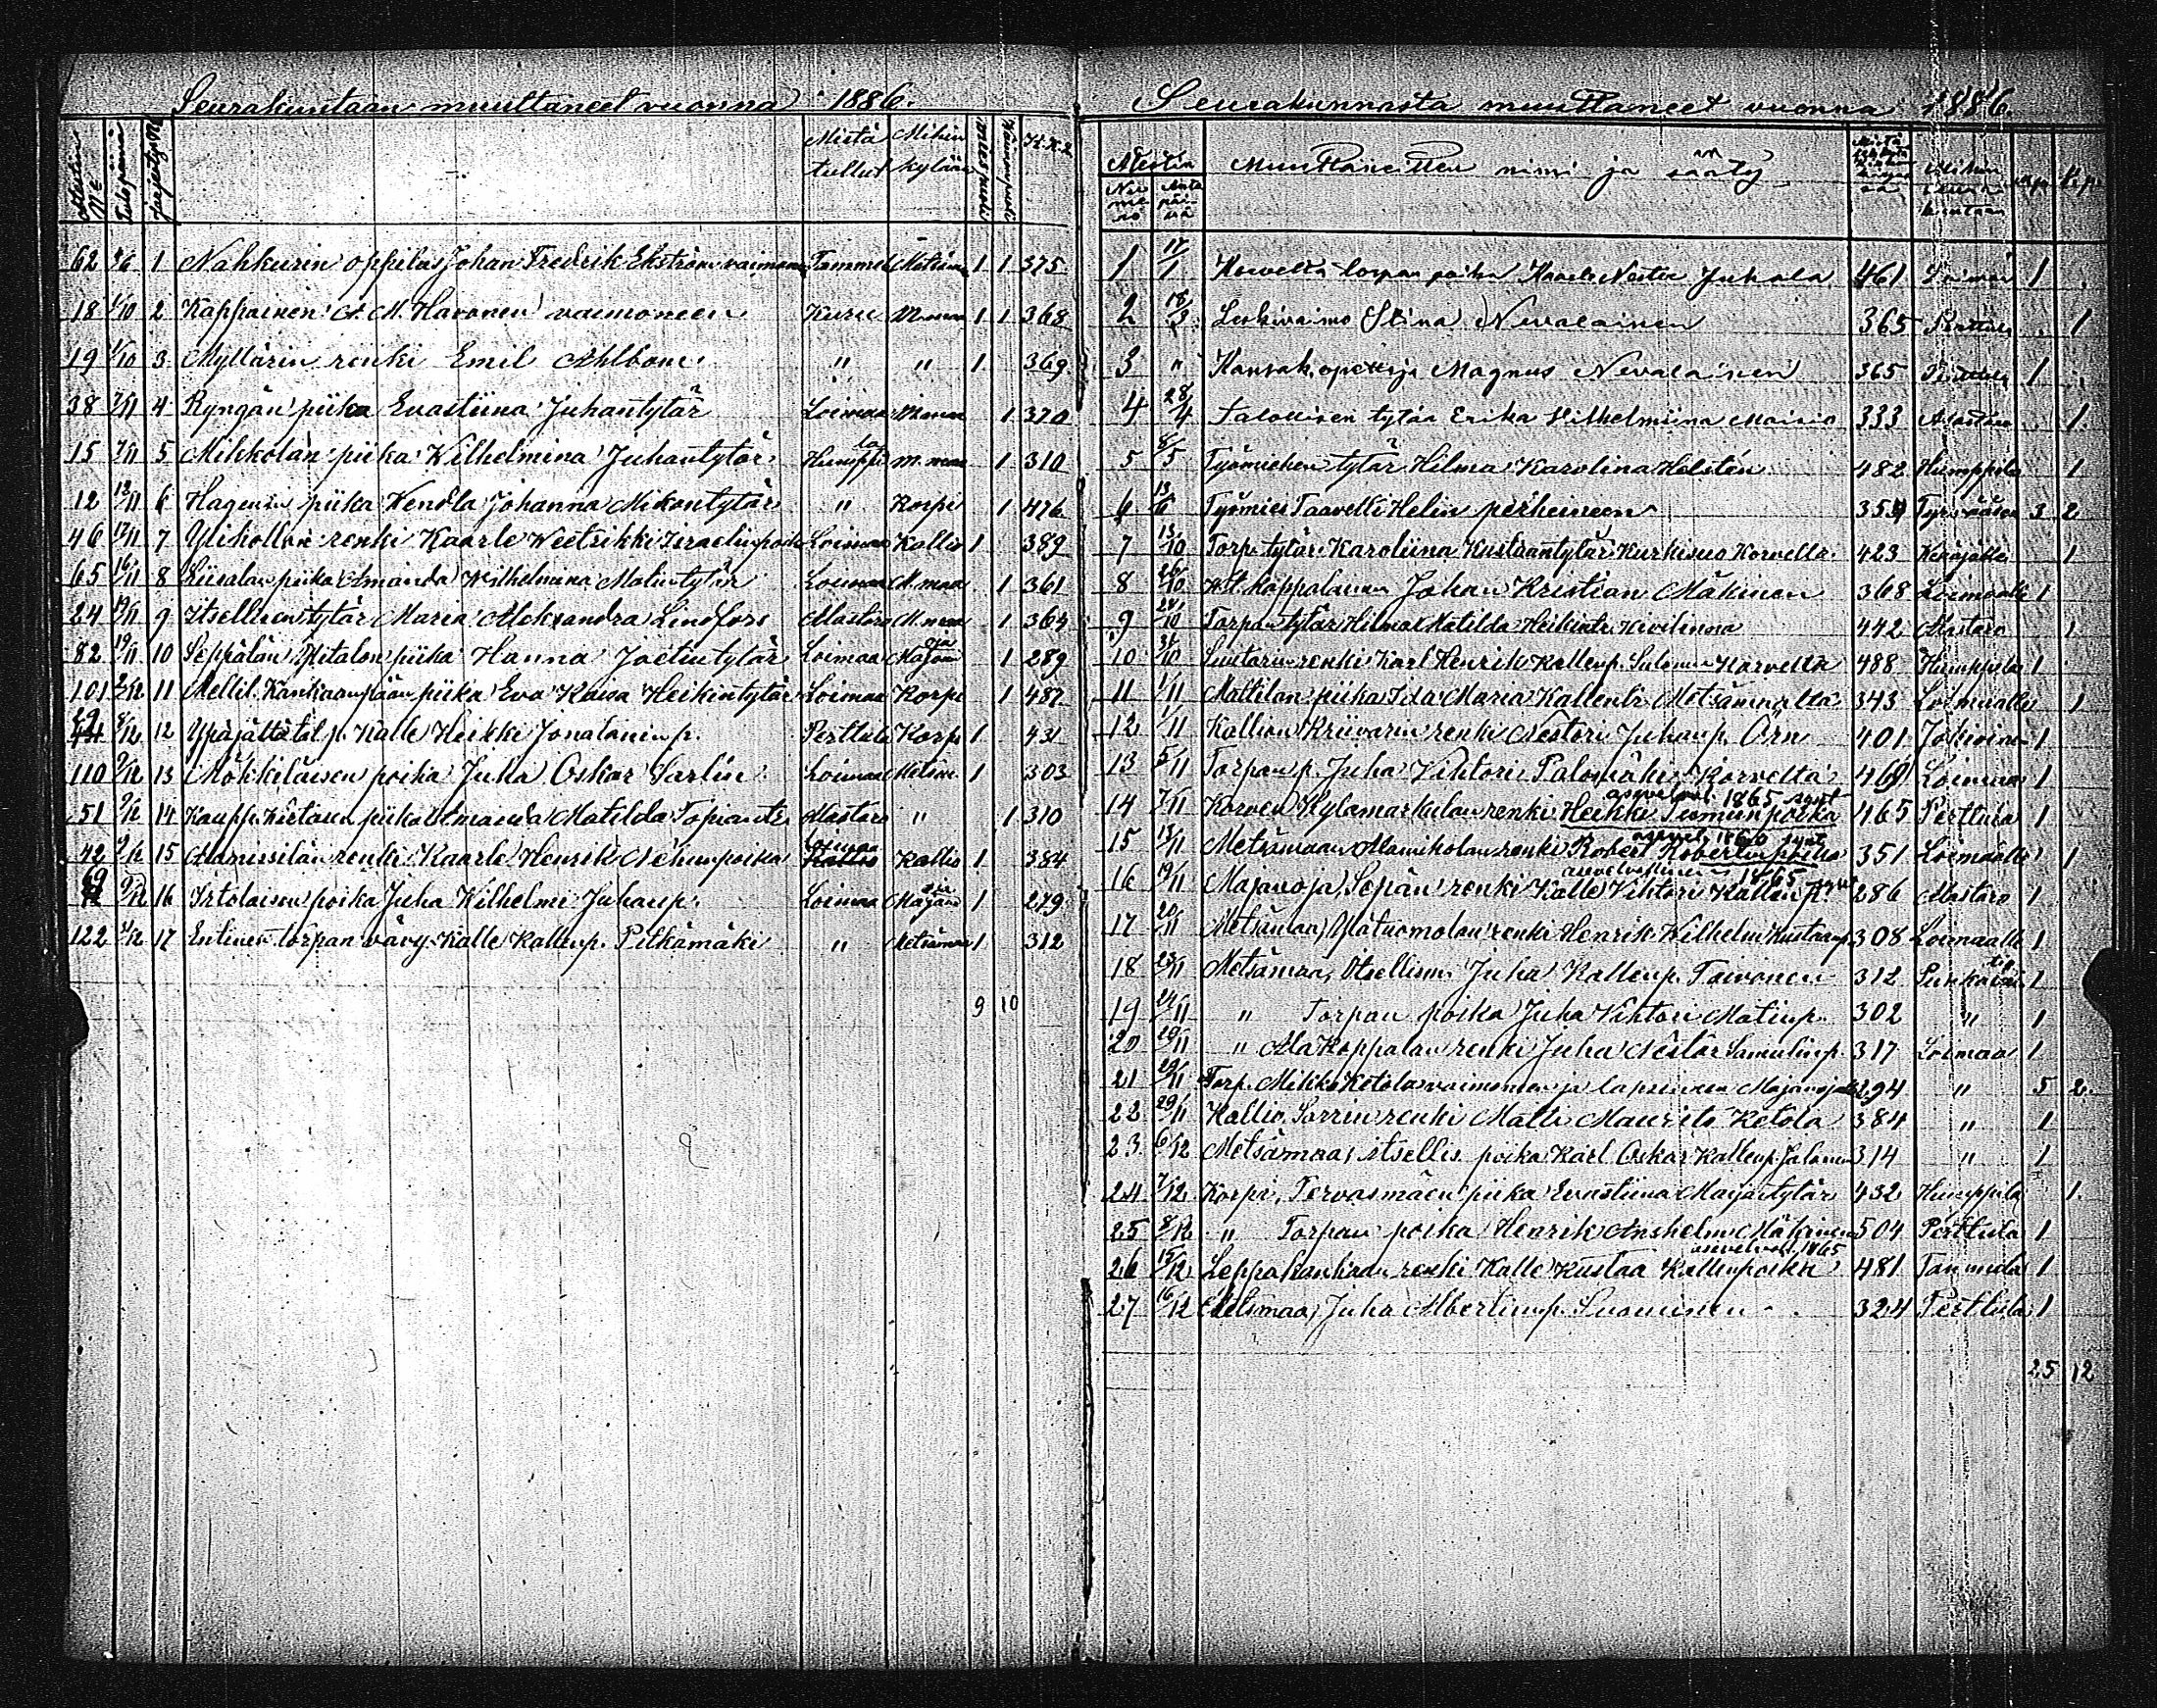 Seurakuntaan muuttaneet vuonna 1886.
Attestin № Tulopäivä Järjestys № Mistä tullut Mihin kylään Miespuoli Vaimonpuoli K.K.
62 1 Nahkurin oppilas Johan Fredrik Ekström vaimoneen Tammela 1 1 375
18 1/10 2 Kappalainen A. M. Havonen vaimoneen Kuru M.maa 1 1 368
19 1/10 3 Myllärin renki Emil Ahlbom " " 1 369
38 7/11 4 Ryngän piika Evastiina Juhantytär Loimaa M.maa 1 370
15 7/11 5 Mikkolan piika Wilhelmina Juhantytär Humppila M.maa 1 310
12 12/11 6 Hagenin piika Wendla Johanna Mikontytär " Korpi 1 476
46 17/11 7 Ylikallon renki Kaarle Weetrikki Israelinpoika Loimaa Kallio 1 389
65 16/11 8 Liisalan piika Amanda Wilhelmina Matintytär Loimaa M.maa 1 361
24 19/11 9 Itsellisen tytär Maria Aleksandra Lindfors Alastaro M.maa 1 364
82 19/11 10 Seppälän Ylitalon piika Hanna Joelintytär Loimaa Majanoja 1 289
101 2/12 11 Mellil. Kankaanpään piika Eva Kaisa Heikintytär Loimaa Korpi 1 487
29 8/12 12 Ypäjältä tal. p. Kalle Heikki Jonatanin p. Perttula Korpi 1 431
110 9/12 13 Mökkiläisen poika Juha Oskar Sarlin Loimaa Metsm. 1 303
51 9/12 14 Kaupp. piika Amanda Matilda Topiantr Alastaro " 1 310
42 9/12 15 renki Kaarle Henrik poika Loimaa Kallio 1 384
69 9/12 16 Irtolaisen poika Juha Wilhelmi Juhanp. Loimaa Majanoja 1 279
122 7/12 17 Entinen torpan vävy Kalle Kallenp. Pitkämäki " Metsämaa 1 312
9 10
Seurakunnasta muuttaneet vuonna 1886.
Attestin Numero Antopäivä Muuttaneitten nimi ja sääty Mistä Mihin seurakuntaan m.p. v.p.
1 Korvelta torpan poika Kaarle Nestor Juhala 461 Loimaa 1
2 18/3 Leskivaimo Stina Nevalainen 365 Perttula 1
3 " Kansak. opettaja Magnus Nevalainen 365 Perttula 1
4 28/4 Talollisen tytär Erika Vilhelmiina Maisio 333 Alastaro 1
5 8/5 Työmiehen tytär Hilma Karolina Helstén 482 Humppila 1
6 13/6 Työmies Taavetti Helin perheineen 354 Tyrvääsen 3 2
7 13/10 Torp. tytär Karoliina Kustaantytär Kurkisuo Korvelta 423 1
8 26/10 V.t. kappalainen Johan Kristian Mäkinen 368 Loimaalle 1
9 28/10 Torpan tytär Hilma Matilda Heikintr Kivilinna 442 Alastaro 1
10 31/10 Suutarin renki Karl Henrik Kallenp. Salonen Korvelta 488 Humppila 1
11 1/11 Mattilan piika Ida Maria Kallentr Metsämaalta 343 Loimaalle 1
12 1/11 Kallion Kriivarin renki Nestori Juhanp. Örn 401 Jokioinen 1
13 5/11 Torpan p. Juha Vihtori Palomäki Korvelta 461 Loimaa 1
asevelvol. 1865 synt.
14 7/11 Korven Kylämarkulan renki Heikki Tuomaanpoika 465 Perttula 1
asevel. 1860 synt.
15 13/11 Metsämaan Alamikolan renki Robert Robertinpoika 351 Loimaalle 1
asevelvollinen 1865 synt.
16 19/11 Majanoja, Sepän renki Kalle Vihtori Kallenp. 286 Alastaro 1
17 20/11 Metsämaa, Ylätuomolan renki Henrik Wilhelm Kustaanp. 308 Loimaalle 1
18 23/11 Metsämaa, Itsellisen Juha Kallenp. Toivonen 312 1
19 24/11 " Torpan poika Juha Vihtori Matinp. 302 " 1
20 29/11 " Alakoppalan renki Juha Nestor Samulinp. 317 Loimaa 1
21 29/11 Torp. Mikko Ketola vaimoneen ja lapsineen Majanojalta 294 " 5 2
22 29/11 Kallio, Sorrin renki Matti Maurits Ketola 384 " 1
23 6/12 Metsämaa, itsellis. poika Karl Oskar Kallenp. Salonen 314 " 1
24 7/12 Korpi, Tervasmäen piika Evastiina Marjantytär 432 Humppila 1
25 8/12 " Torpan poika Henrik Anshelm Mäkinen 504 Perttula 1
asevelvol. 1865
26 15/12 Leppäkankaan renki Kalle Kustaa Kallenpoika 481 Tammela 1
27 16/12 Metsmaa, Juha Albertinp. Suominen 324 Perttula 1
25 12